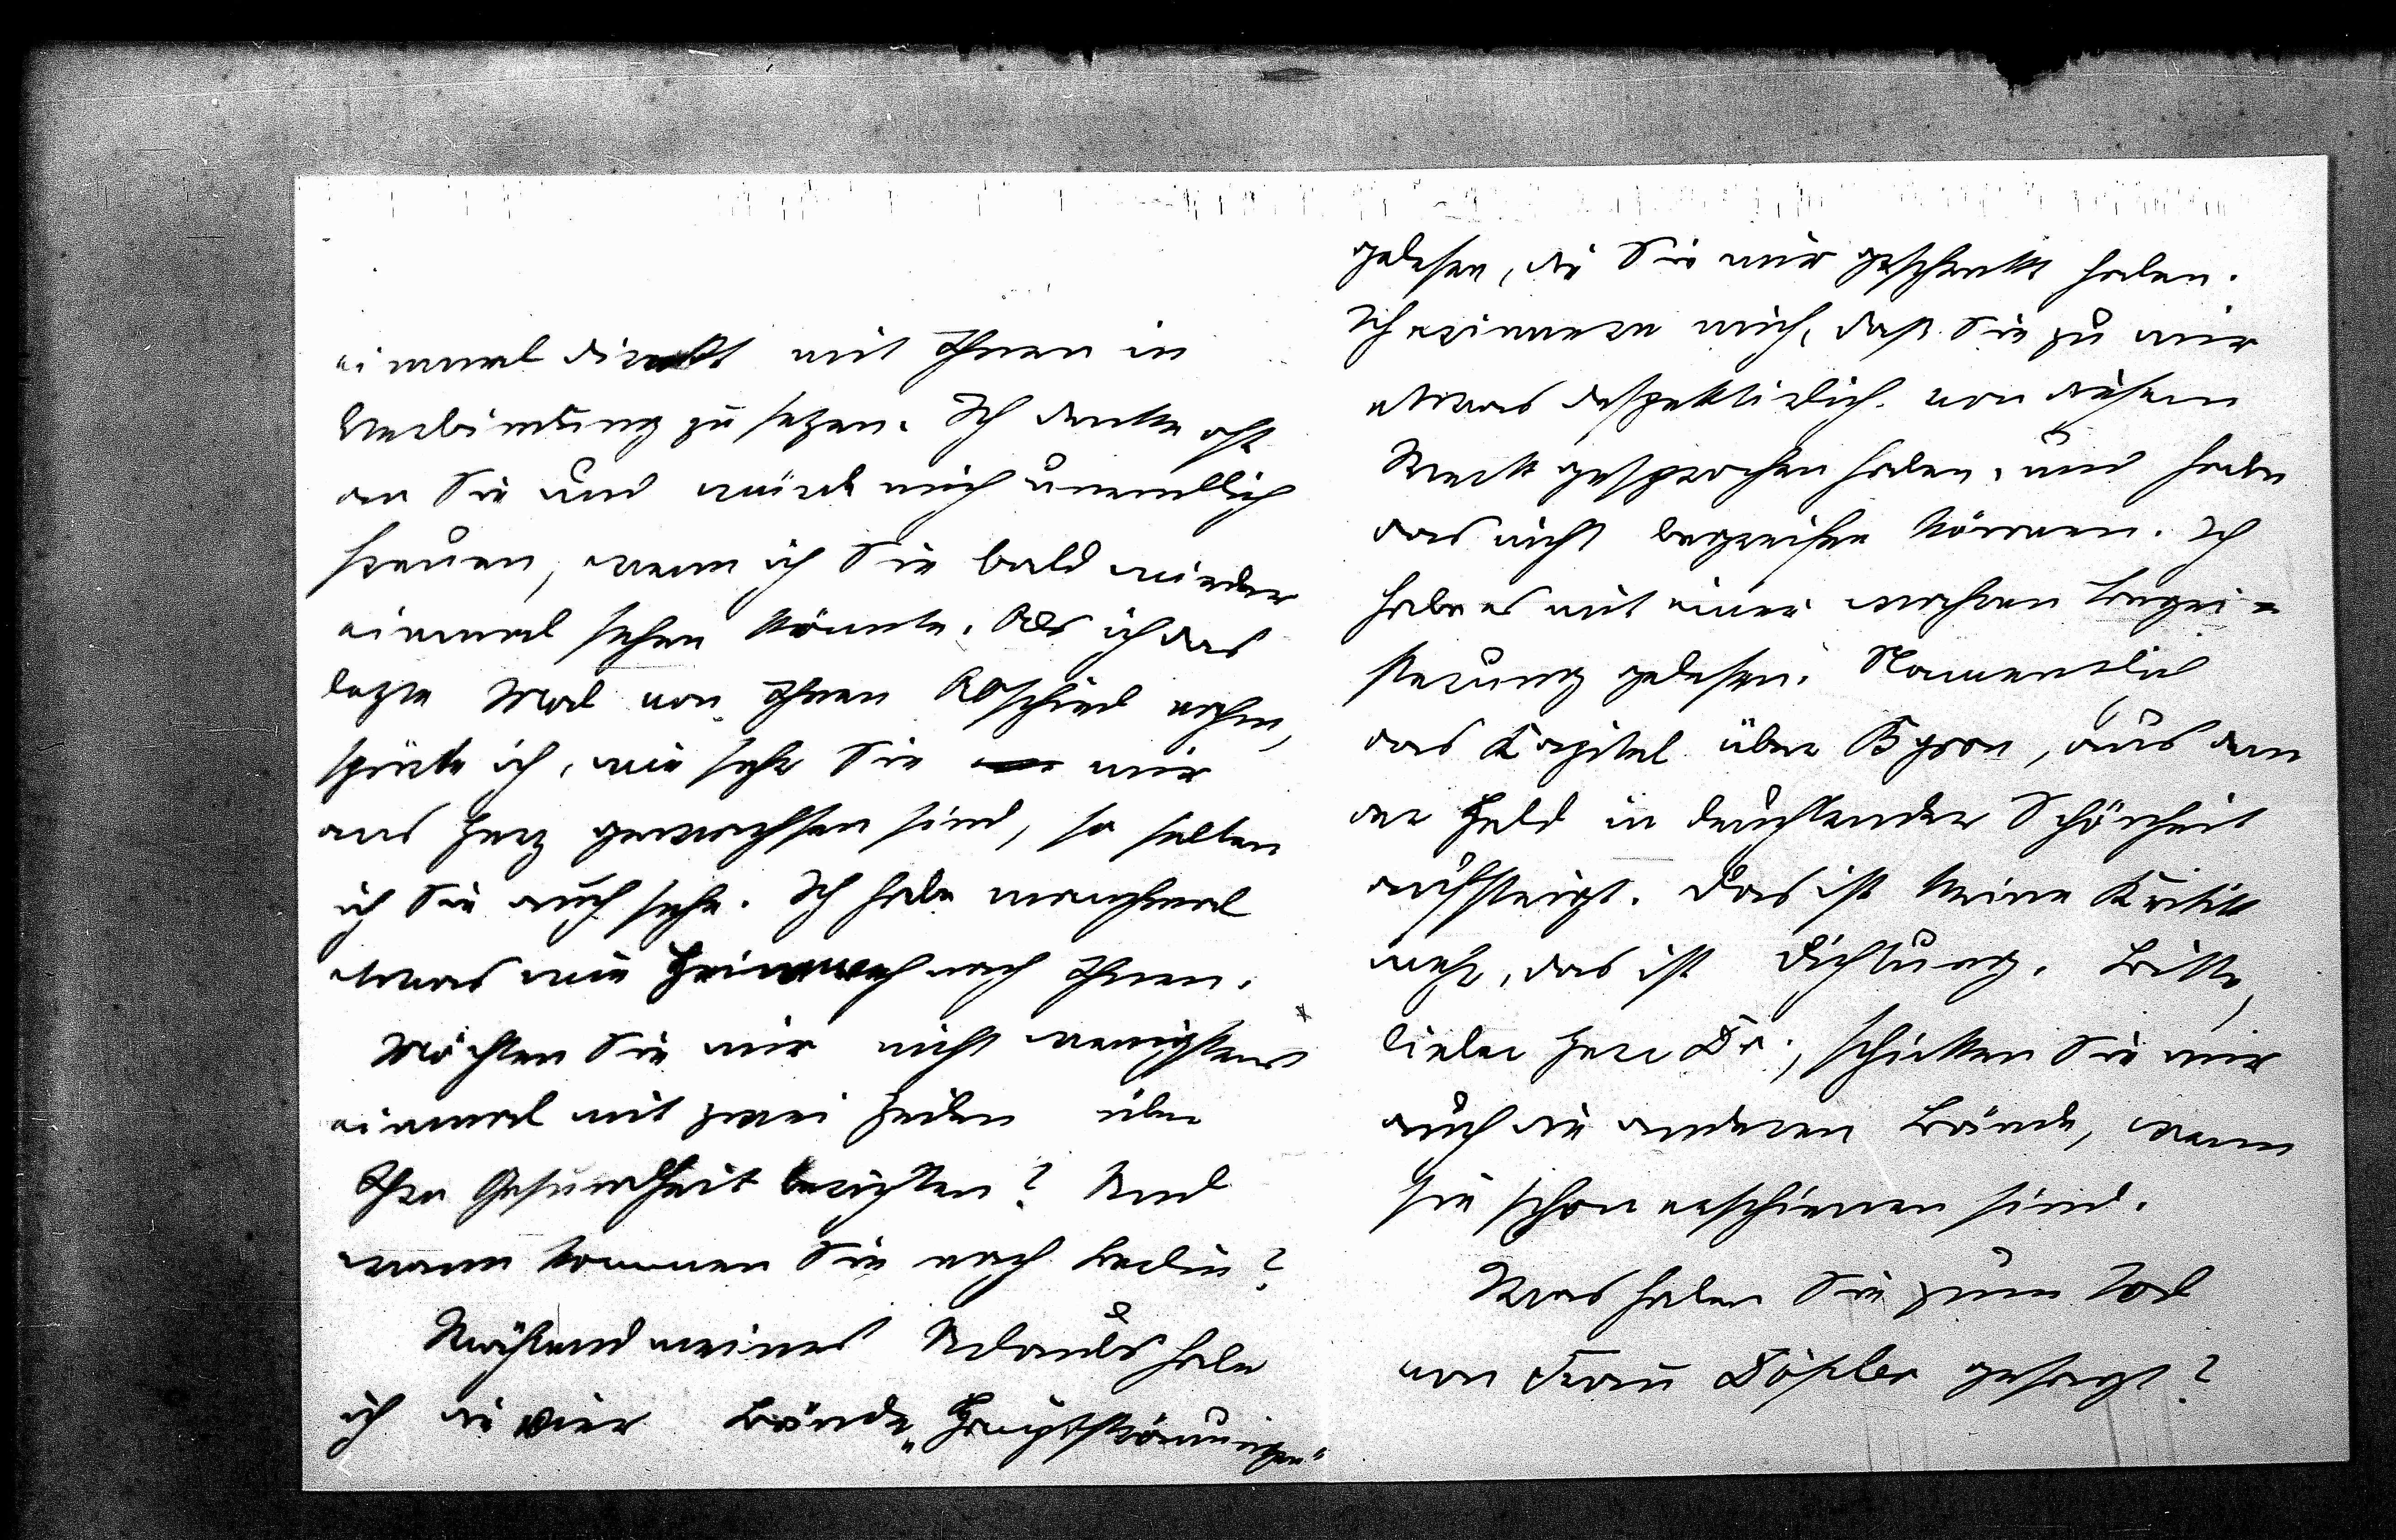 einmal direkt mit Ihnen in
Verbindung zu setzen. Ich denke oft
an Sie und würde mich unendlich
freuen, wenn ich Sie bald wieder
einmal sehen könnte. Als ich das
letzte Mal von Ihnen Abschied nahm,
spürte ich, wie sehr Sie mir
ans Herz gewachsen sind, so selten
ich Sie auch sehe. Ich habe manchmal
etwas wie Heimweh nach Ihnen.
Möchten Sie mir nicht wenigstens
einmal mit zwei Zeilen über
Ihre Gesundheit berichten? Und
wann kommen Sie nach Berlin?
Während meines Urlaubs habe
ich die vier Bände „Hauptströmungen"
gelesen, die Sie mir geschenkt haben.
Ich erinnere mich, daß Sie zu mir
etwas despektirlich von diesem
Werk gesprochen haben, und habe
das nicht begreifen können. Ich
habe es mit einer wahren Begei=
sterung gelesen. Namentlich
das Kapitel über Byron, aus dem
der Held in leuchtender Schönheit
aufsteigt. Das ist keine Kritik
mehr, das ist Dichtung. Bitte,
lieber Herr Dr., schicken Sie mir
auch die anderen Bände, wenn
sie schon erschienen sind.
Was haben Sie zum Tod
von Frau gesagt?